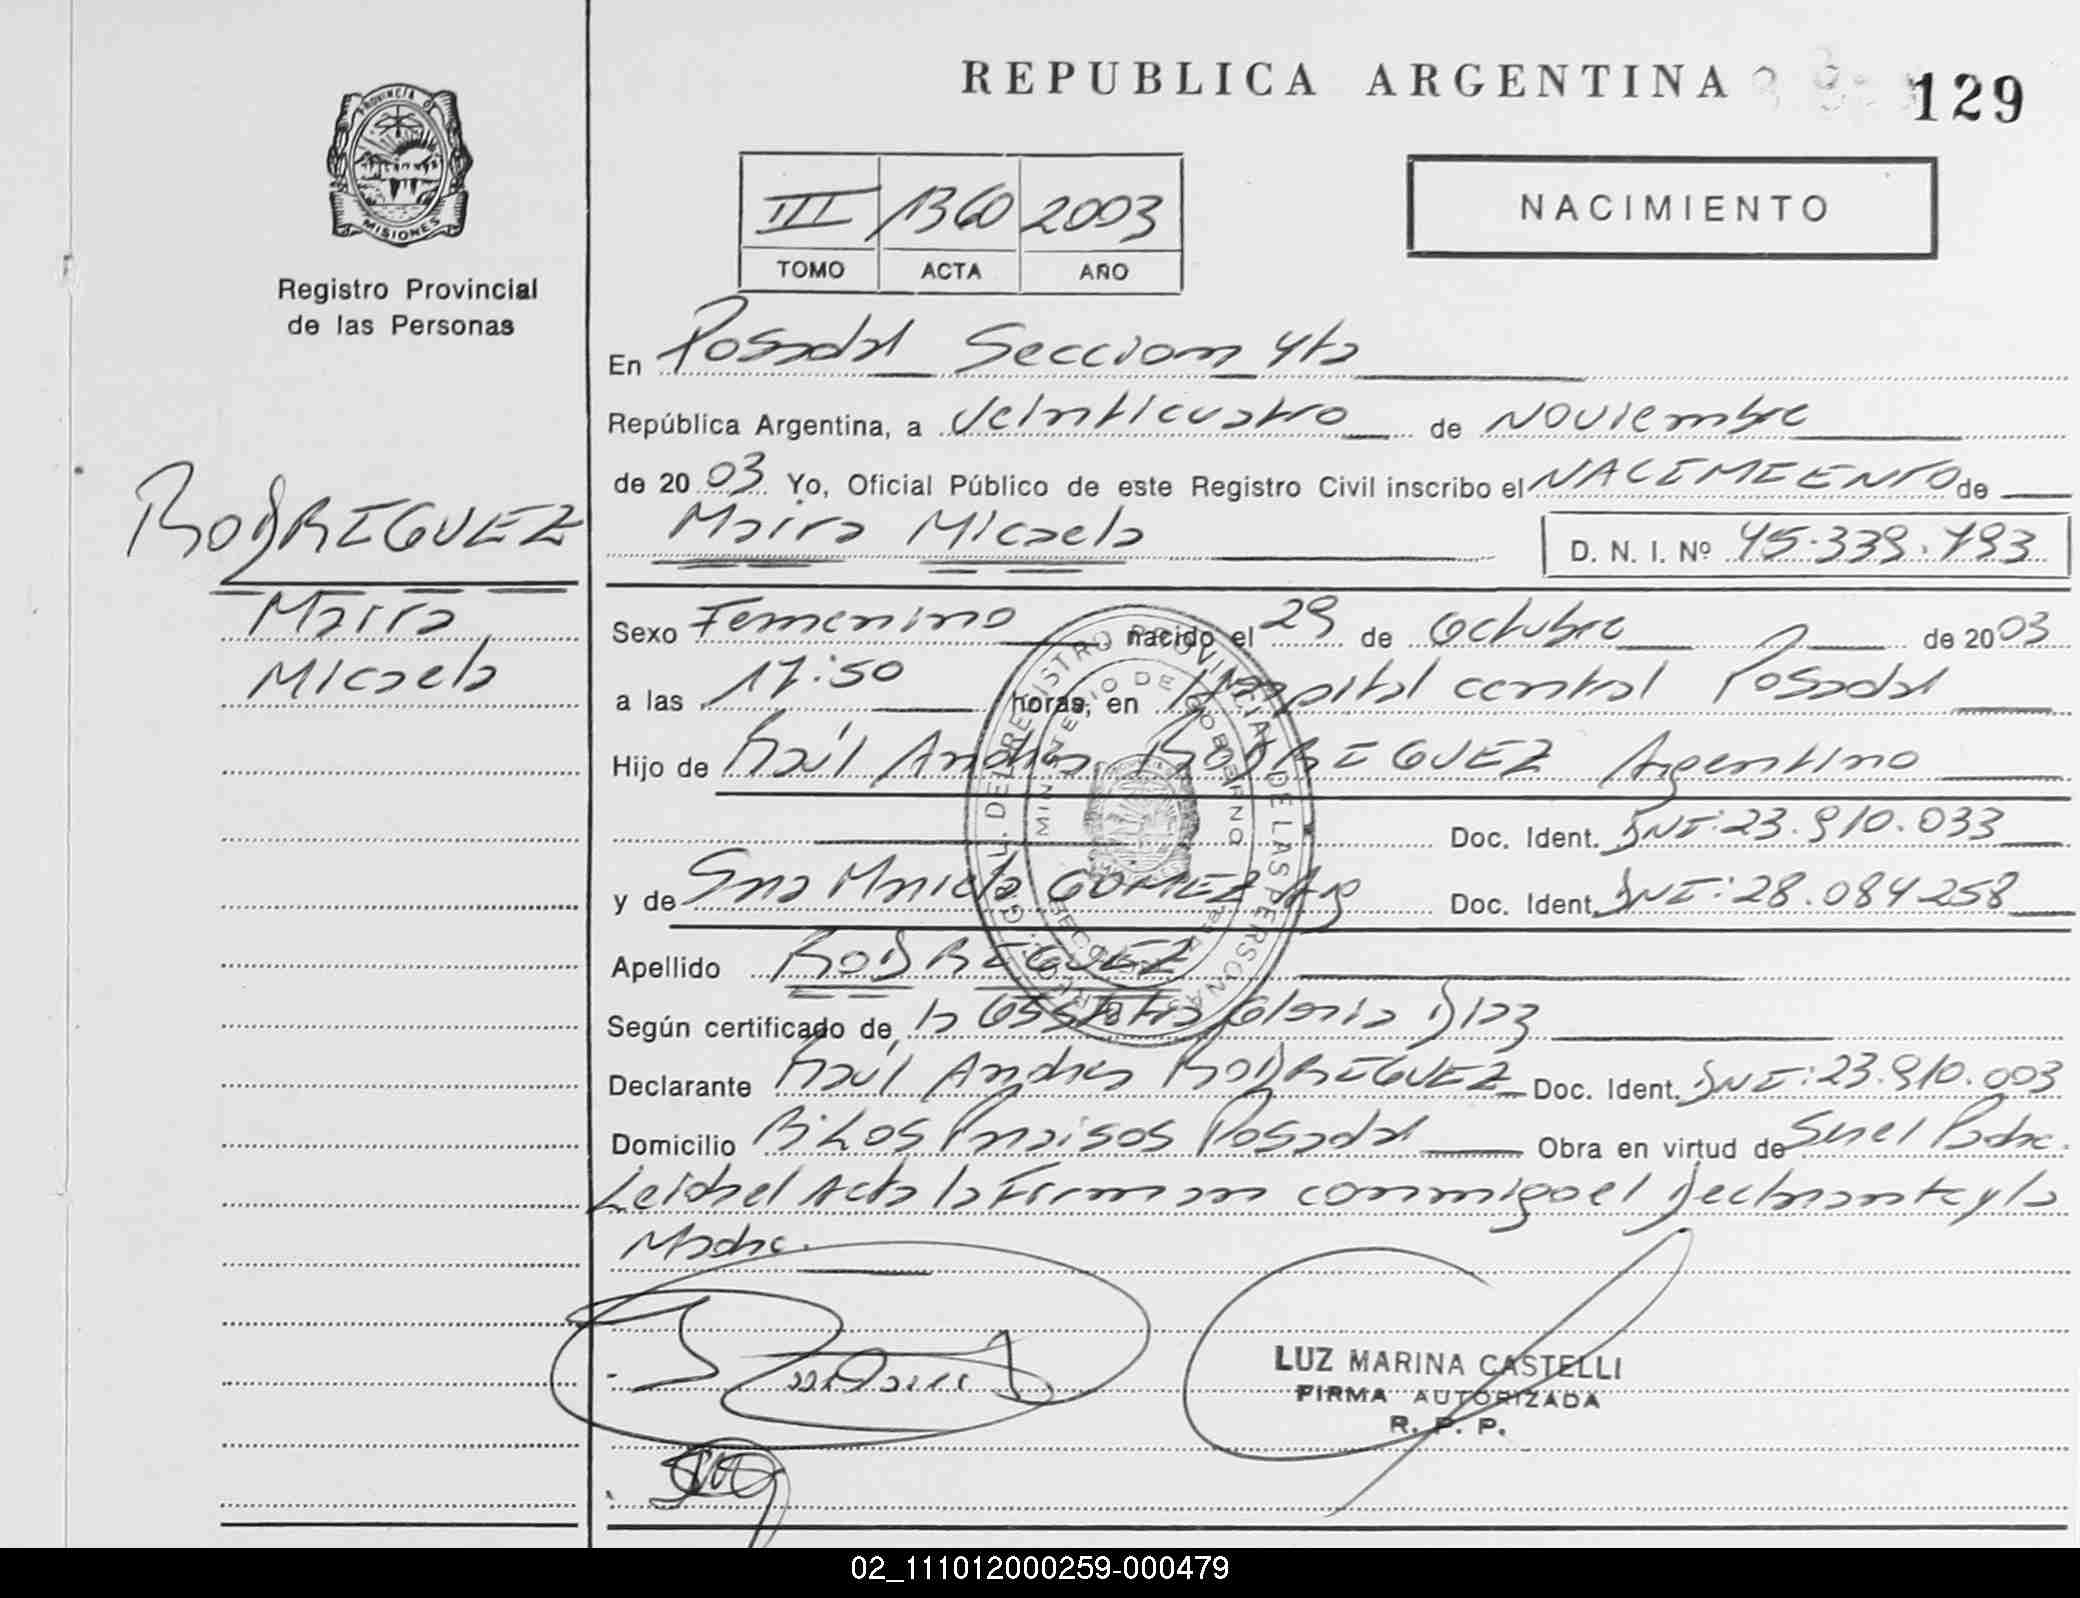 REPUBLICA ARGENTINA
129
PROVINCIA DE MISIONES
Registro Provincial
de las Personas
III 1360 2003
TOMO ACTA AÑO
NACIMIENTO
En Posadas Seccion 4ta
República Argentina, a Veinticuatro de Noviembre
de 2003 Yo, Oficial Público de este Registro Civil inscribo el NACIMIENTO de
Maira Micaela D. N. I. Nº 45.339.793
RODRIGUEZ
Maira
Micaela
Sexo Femenino nacido el 29 de Octubre de 2003
a las 17:50 horas, en Hospital central Posadas
Hijo de Raúl Andres RODRIGUEZ Argentino
Doc. Ident. DNI: 23.910.033
y de GOMEZ Arg Doc. Ident. DNI: 28.084258
Apellido RODRIGUEZ
Según certificado de la Obstetra Gloria Diaz
Declarante Raúl Andres RODRIGUEZ Doc. Ident. DNI: 23.910.003
Domicilio Bº Los Paraisos Posadas Obra en virtud de Ser el Padre.
Leida el Acta la Firman conmigo el Declarante y la
Madre.
REGISTRO PROVINCIAL DE LAS PERSONAS
MINISTERIO DE GOBIERNO
LUZ MARINA CASTELLI
FIRMA AUTORIZADA
R. P. P.
02_111012000259-000479